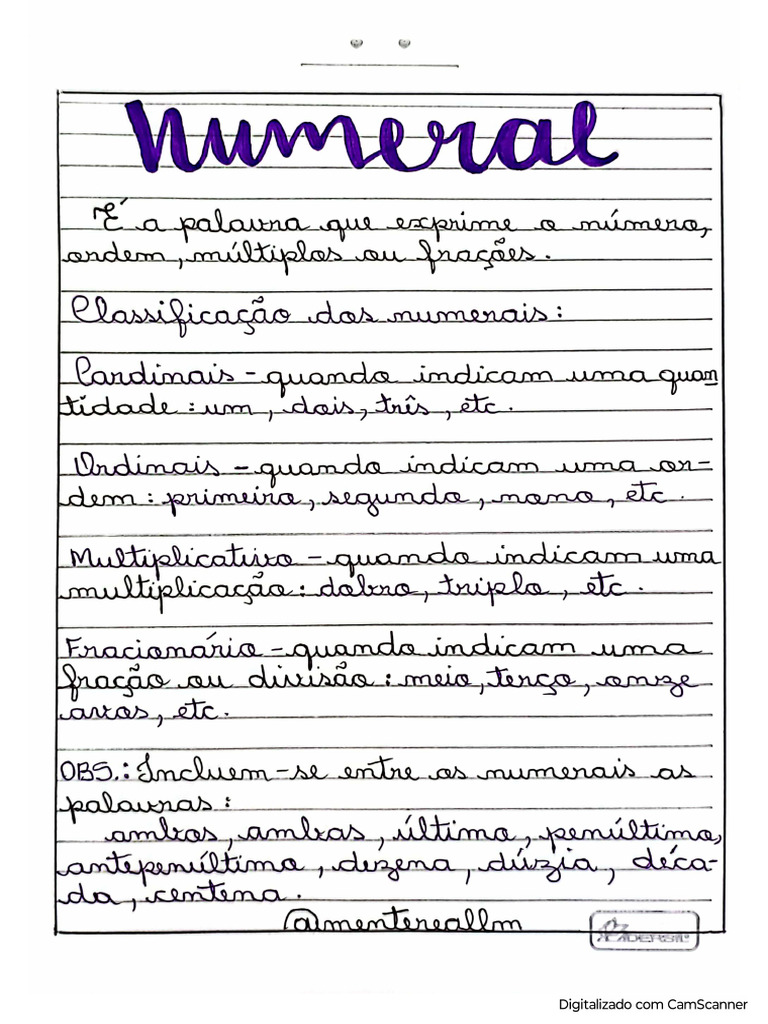 Numeral
É a palavra que exprime o número,
ordem, múltiplos ou frações.
Classificação dos numerais:
Cardinais - quando indicam uma quan
tidade: um, dois, três, etc.
Ordinais - quando indicam uma or-
dem: primeiro, segundo, nono, etc.
Multiplicativo - quando indicam uma
multiplicação: dobro, triplo, etc.
Fracionário - quando indicam uma
fração ou divisão: meio, terço, onze
avos, etc.
OBS.: Incluem-se entre os numerais as
palavras:
ambos, ambas, último, penúltimo,
antepenúltimo, dezena, dúzia, déca-
da, centena.
@mentereallm
Digitalizado com CamScanner